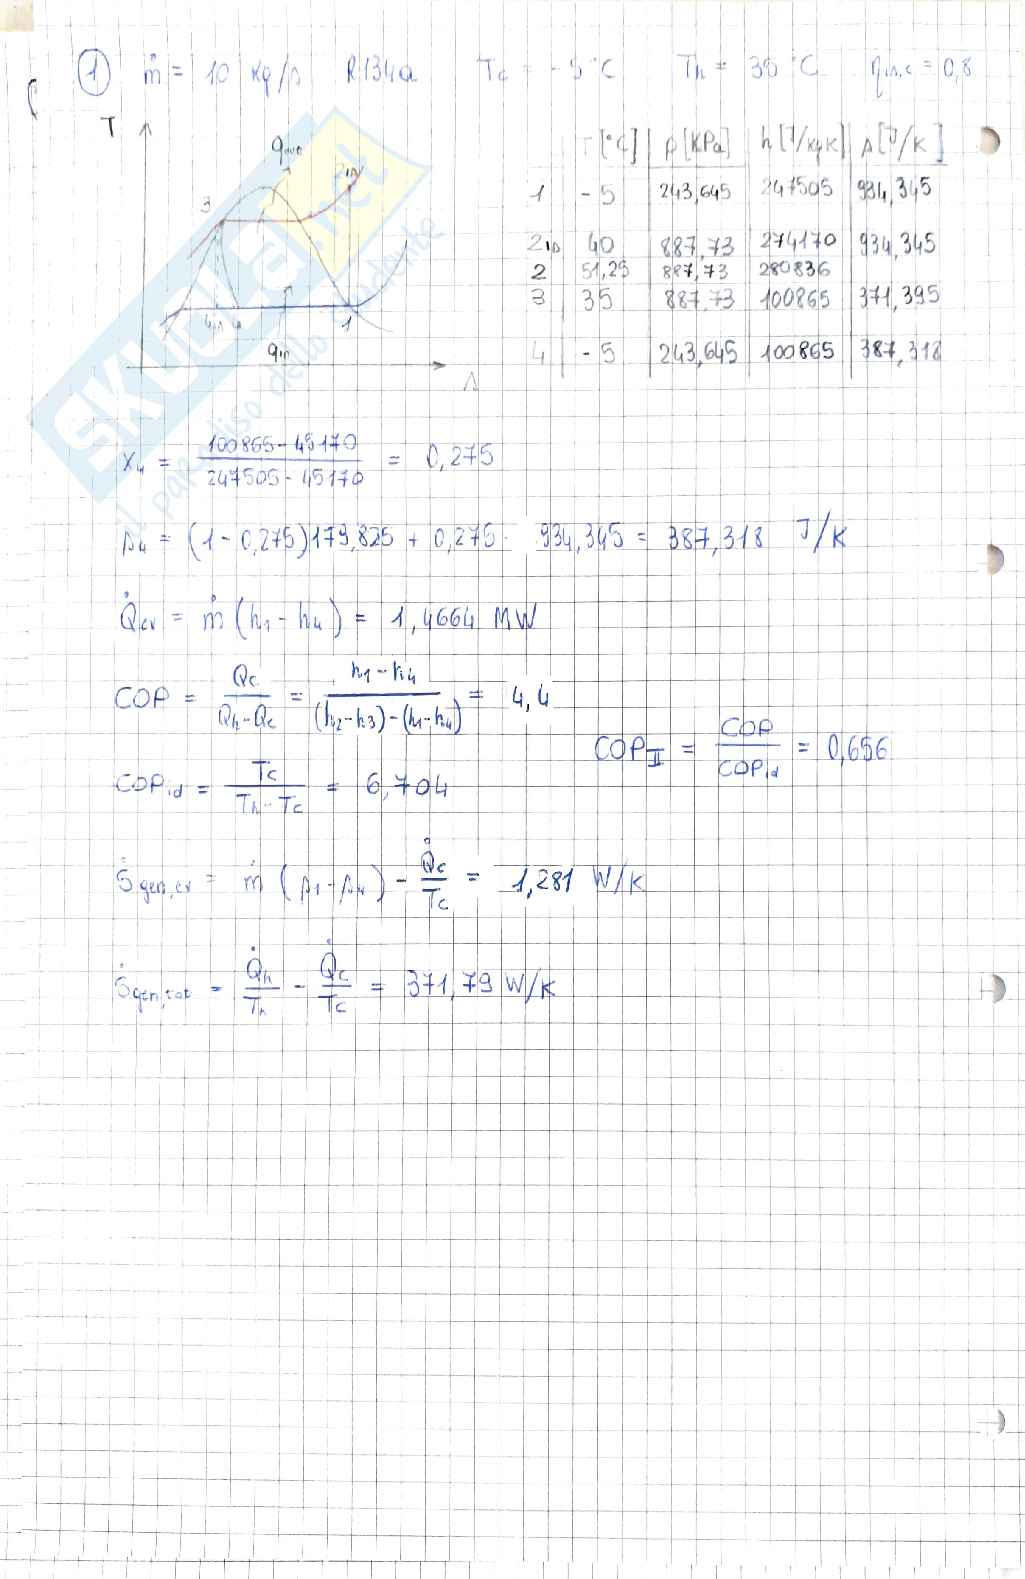 1 ṁ = 10 kg/s R134a Tc = -5 °C Th = 35 °C ηis,c = 0,8
T
qout
2is
3
4is 4 1
qin
s
T[°C] p[KPa] h[J/kgK] s[J/K]
1 -5 243,645 247505 934,345
2is 40 887,73 274170 934,345
2 51,25 887,73 280836
3 35 887,73 100865 371,395
4 -5 243,645 100865 387,318
x4 = (100865-45170)/(247505-45170) = 0,275
s4 = (1-0,275)179,825 + 0,275 · 934,345 = 387,318 J/K
Q̇ev = ṁ(h1-h4) = 1,4664 MW
COP = Qc/(Qh-Qc) = (h1-h4)/((h2-h3)-(h1-h4)) = 4,4
COPII = COP/COPid = 0,656
COPid = Tc/(Th-Tc) = 6,704
Ṡgen,ev = ṁ(s1-s4) - Q̇c/Tc = 1,281 W/K
Ṡgen,tot = Q̇h/Th - Q̇c/Tc = 371,79 W/K
SKUOLA.net
il paradiso dello studente